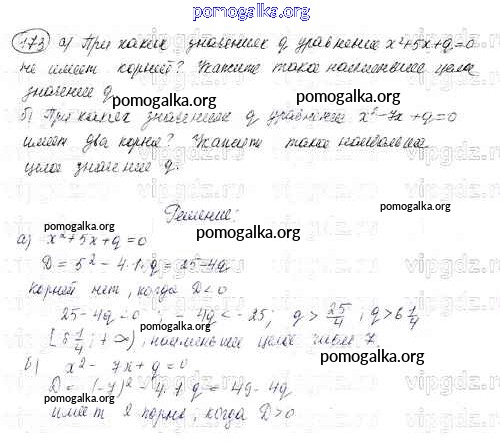 pomogalka.org
173 а) При каких значениях q уравнение x²+5x+q=0
не имеет корней? Укажите такое наименьшее целое
значение q
pomogalka.org
б) При каких значениях q уравнение x²-7x+q=0
имеет два корня? Укажите такое наибольшее
целое значение q.
pomogalka.org
Решение:
а) x²+5x+q=0
pomogalka.org
D = 5²-4·1·q = 25-4q
корней нет, когда D<0
25-4q=0 ; -4q<-25; q > 25/4 ; q > 6 1/4
[6 1/4; +∞), наименьшее целое число 7.
pomogalka.org
б) x²-7x+q=0
D = (-7)²-4·1·q = 49-4q
имеет 2 корня, когда D>0
pomogalka.org
vipgdz.ru